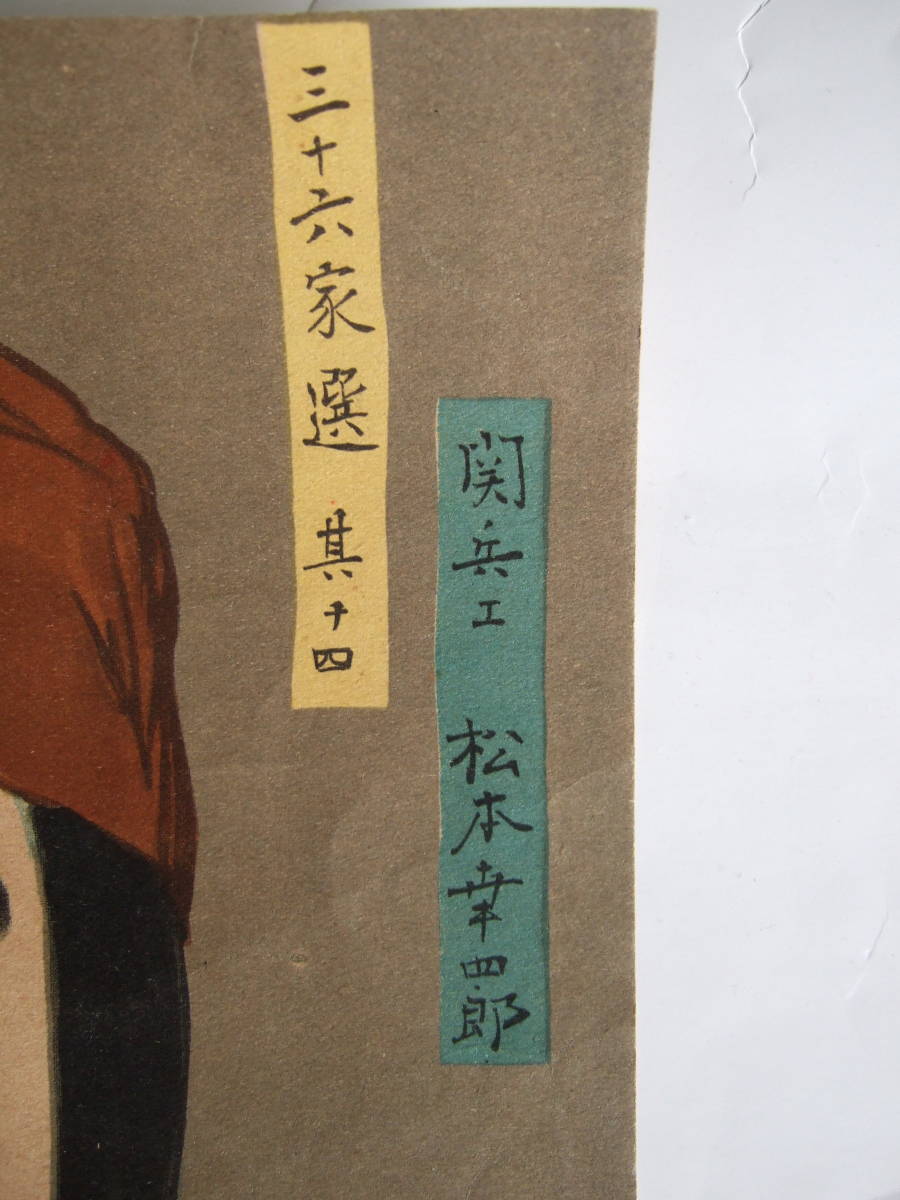 関兵エ 松本幸四郎
三十六家選 其十四